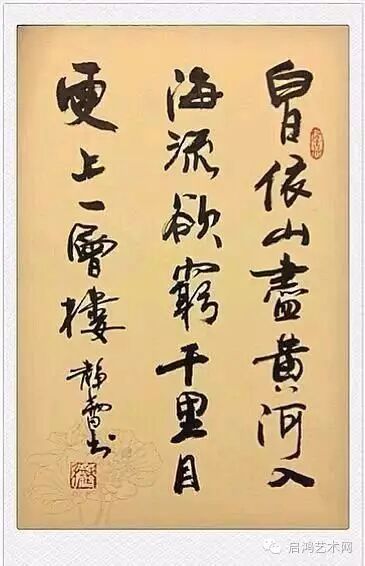 白日依山盡黄河入
海流欲窮千里目
更上一層樓
書
启鸿艺术网